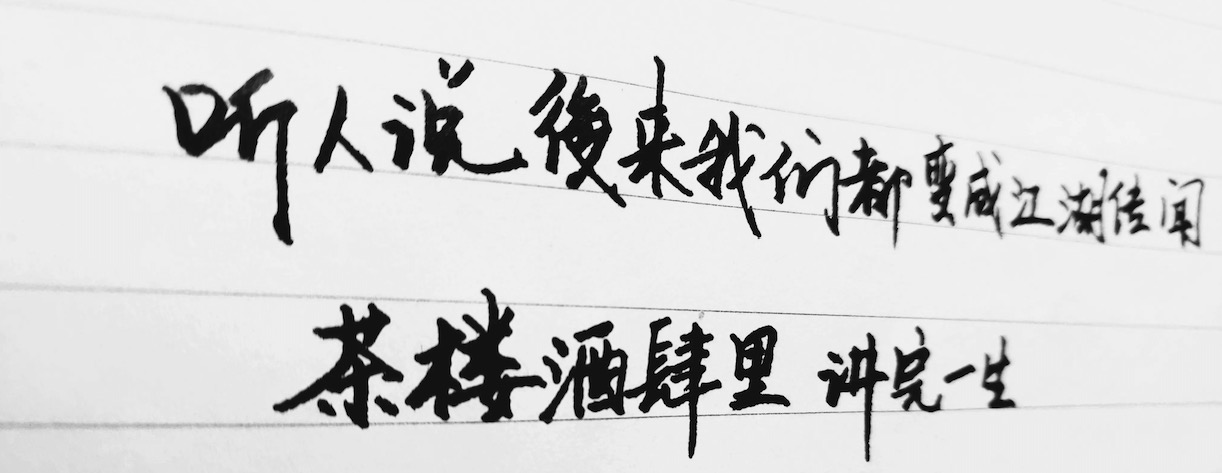 听人说後来我们都变成江湖传闻
茶楼酒肆里讲完一生